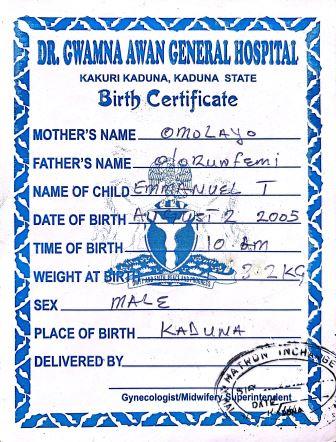 DR. GWAMNA AWAN GENERAL HOSPITAL
KAKURI KADUNA, KADUNA STATE
Birth Certificate
MOTHER'S NAME OMOLAYO
FATHER'S NAME Olorunfemi
NAME OF CHILD EMMANUEL T
DATE OF BIRTH AUGUST 2 2005
TIME OF BIRTH 10 am
WEIGHT AT BIRTH 3.2KG
SEX MALE
PLACE OF BIRTH KADUNA
DELIVERED BY
Gynecologist/Midwifery Superintendent
MATRON INCHARGE
DATE